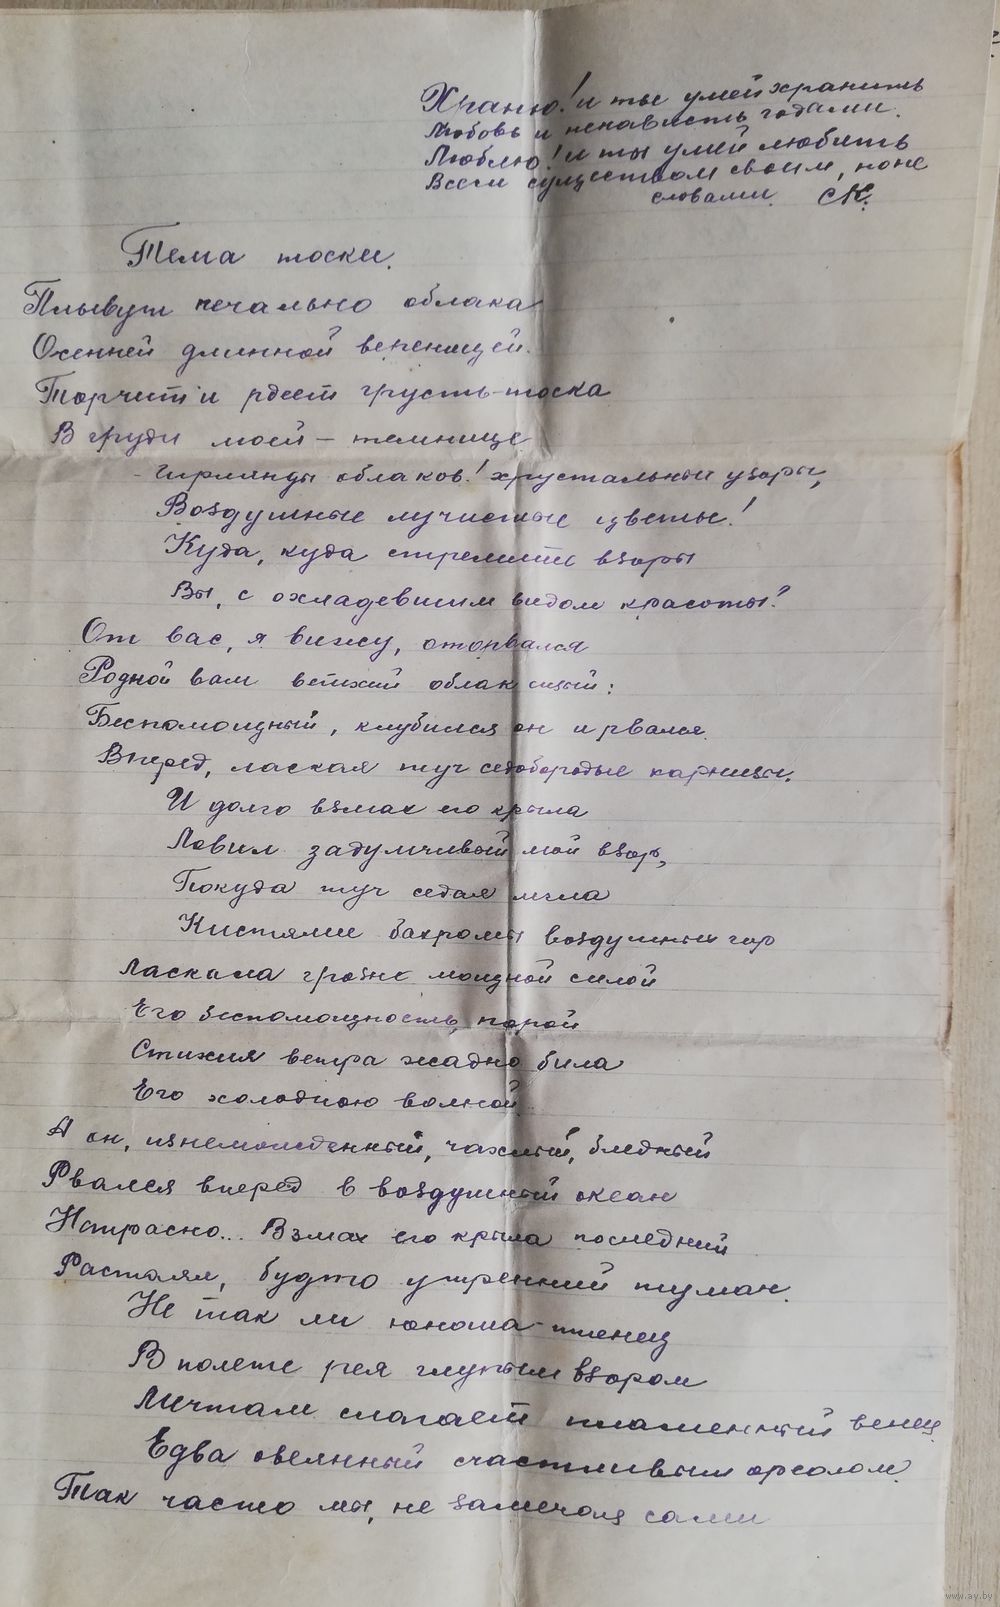 Храню! и ты умей хранить
Любовь и ненависть годами.
Люблю! и ты умей любить
Всем существом своим, но не
словами. СК.
Тема тоски.
Плывут печально облака
Осенней длинной вереницей.
Торчит и рдеет грусть-тоска
В груди моей – темнице
Гирлянды облаков! хрустальные узоры,
Воздушные лучистые цветы!
Куда, куда стремите взоры
Вы, с охладевшим видом красоты?
От вас, я вижу, оторвался
Родной вам ветхий облак сизый:
Беспомощный, клубился он и рвался
Вперед, лаская туч седобородые карнизы.
И долго взмах его крыла
Ловил задумчивый мой взор,
Покуда туч седая мгла
Кистями бахромы воздушных гор
Ласкала грозно мощной силой
Его беспомощность, порой
Стихия ветра жадно била
Его холодною волной.
А он, изнеможденный, чахлый, бледный
Рвался вперед в воздушный океан
Напрасно... Взмах его крыла последний
Растаял, будто утренний туман.
Не так ли юноша-птенец
В полете рея глупым взором
Мечтам слагает пламенный венец
Едва овеянный счастливым ореолом.
Так часто мы, не замечая сами
www.ay.by